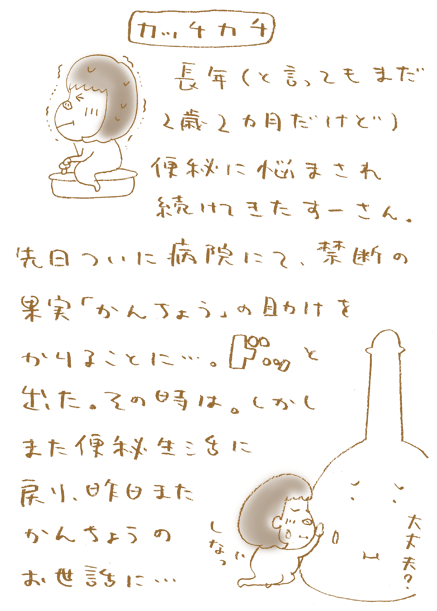 カッチカチ
長年(と言ってもまだ
2歳2カ月だけど)
便秘に悩まされ
続けてきたすーさん。
先日ついに病院にて、禁断の
果実「かんちょう」の助けを
かりることに…。ドドッと
出た。その時は。しかし
また便秘生活に
戻り、昨日また
かんちょうの
お世話に…
しなっ
大丈夫?